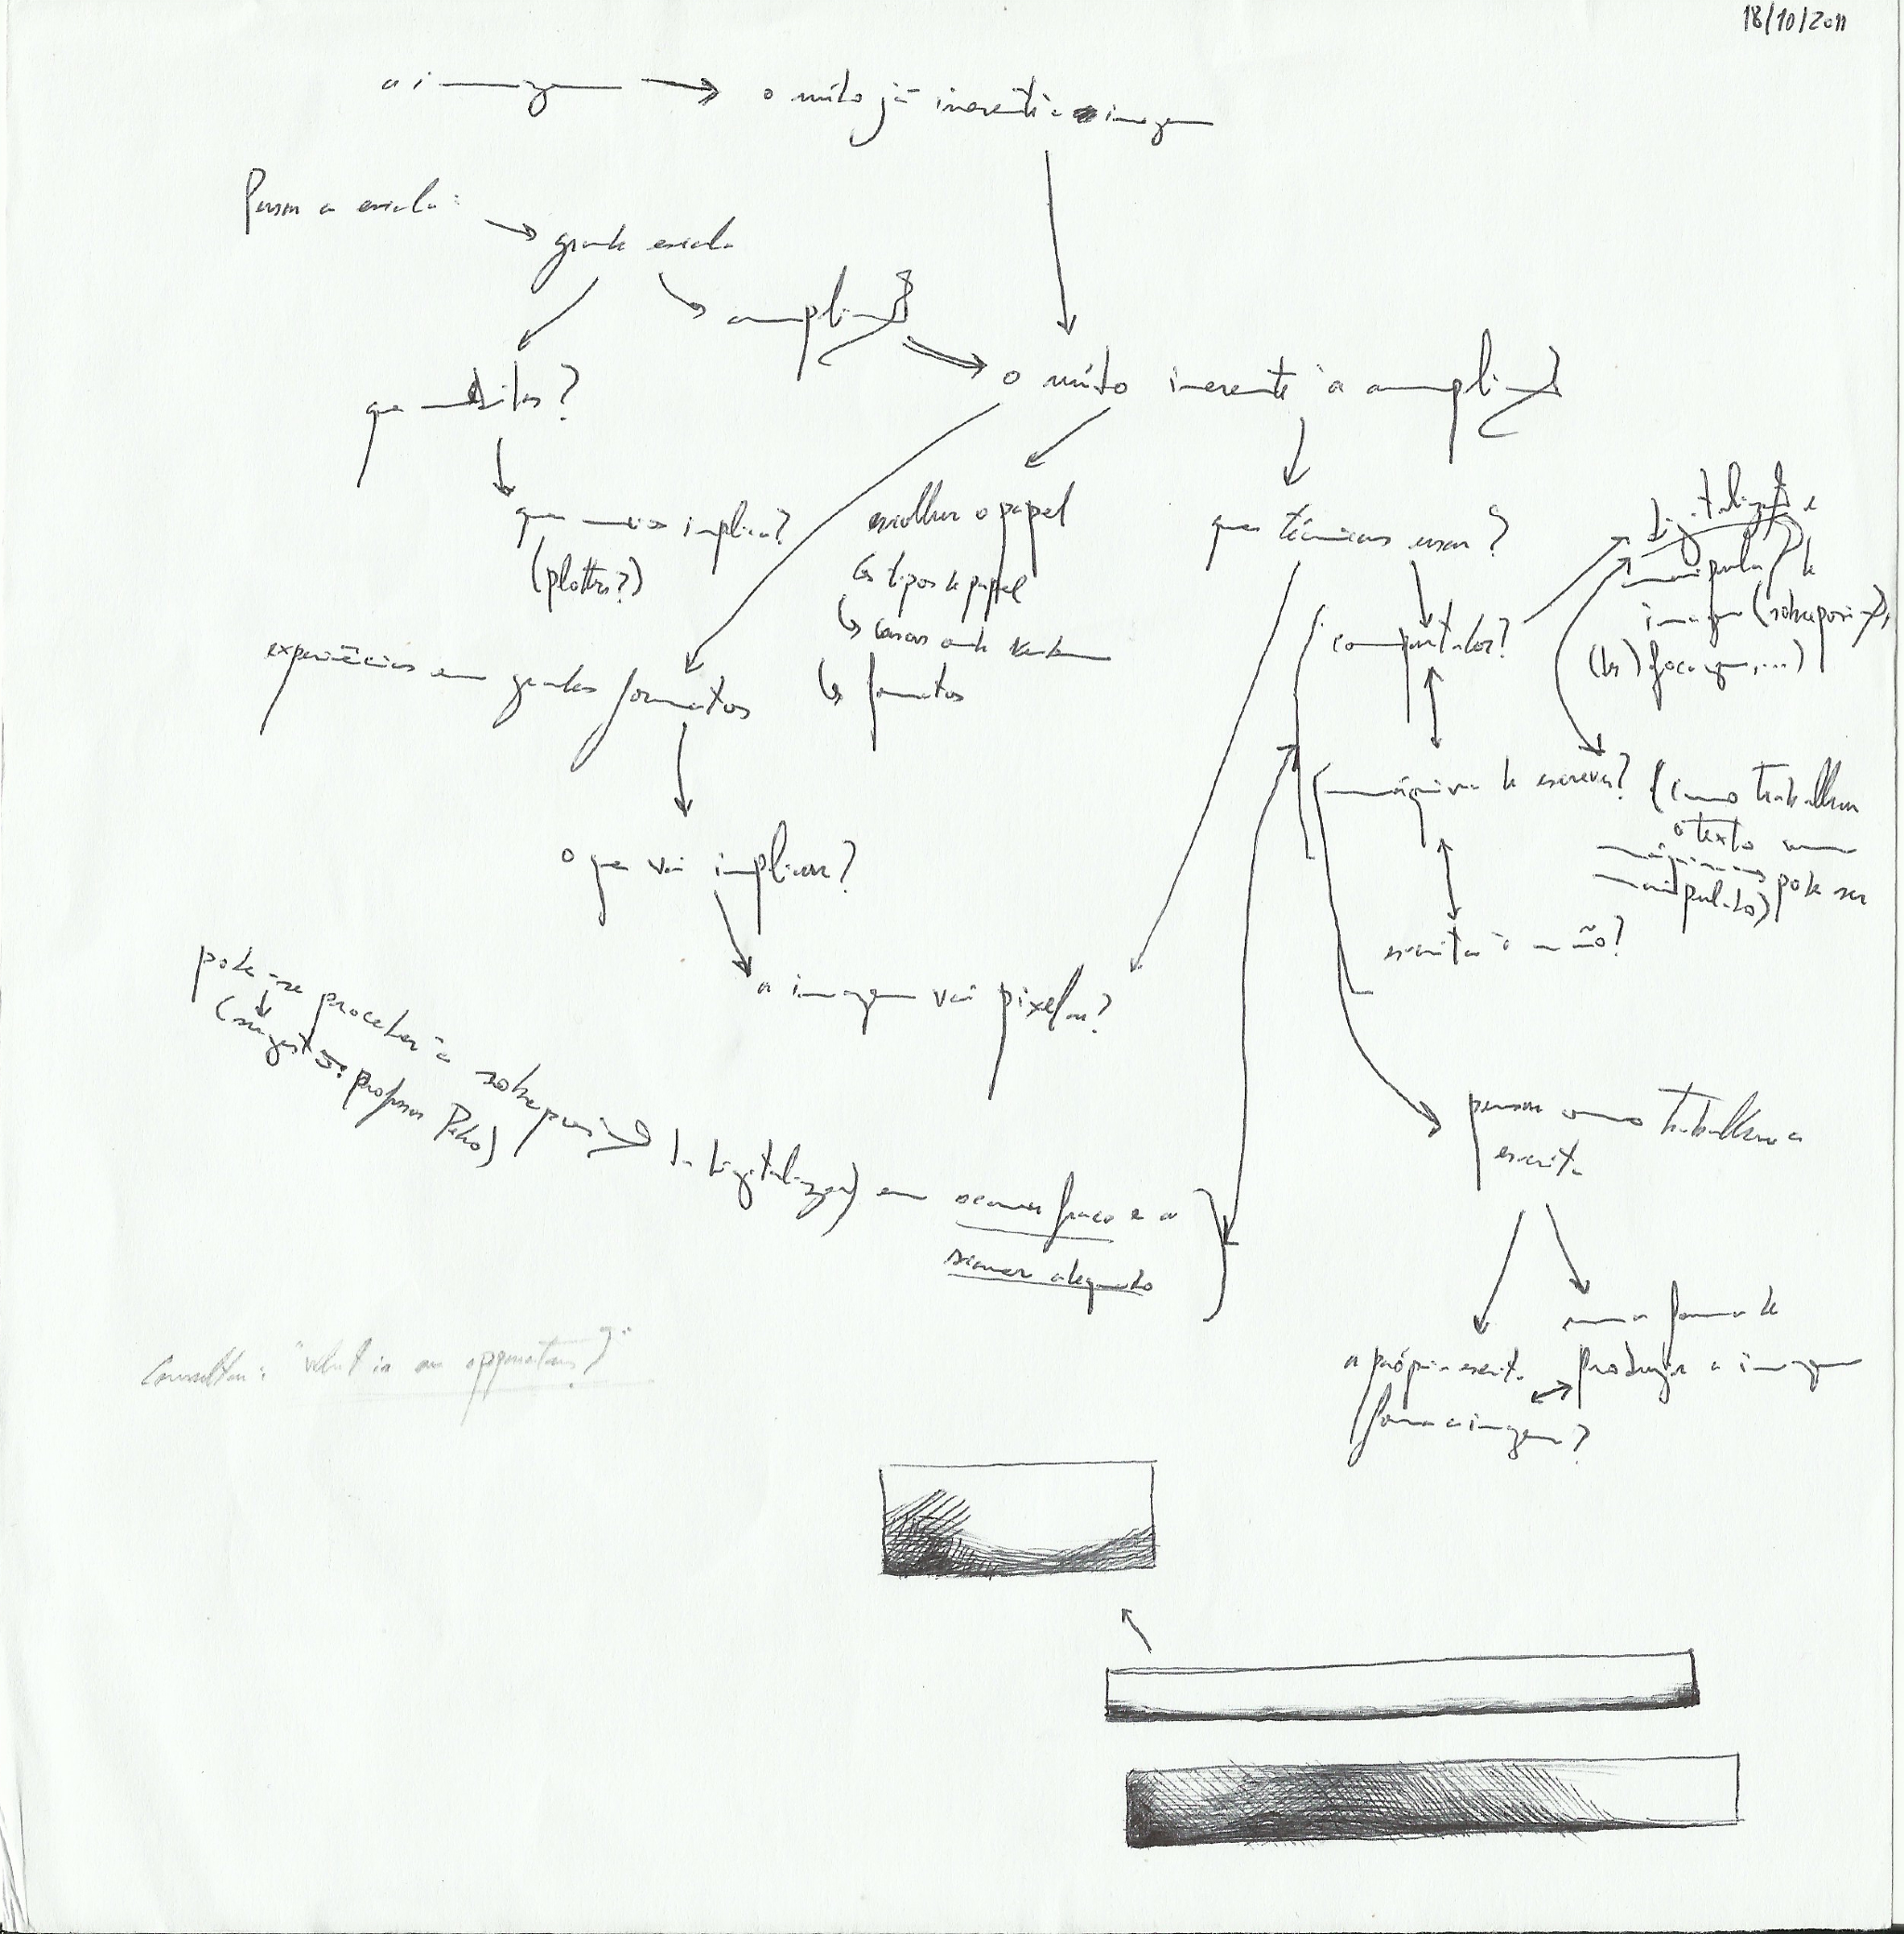 18/10/2011
a imagem → o ruído já inerente à imagem
Pensar a escala:
→ grande escala
ampliação
que medidas?
⇒ o ruído inerente à ampliação
que meios implica?
(plotter?)
escolher o papel
↳ tipos de papel
↳ casas onde vendem
↳ formatos
que técnicas usar?
digitalização e
manipulação de
imagem (sobreposição,
(des)focagem, ...)
computador?
experiências em grandes formatos
máquina de escrever? (como trabalhar
o texto numa
máquina → pode ser
manipulado)
o que vai implicar?
escrita à mão?
a imagem vai pixelar?
pode-se proceder à sobreposição da digitalização em scanner fraco e a
scanner adequado
(sugestão: professor Pedro)
pensar como trabalhar a
escrita
a própria escrita
forma a imagem?
uma forma de
produzir a imagem
Consultar: "What is an apparatus?"